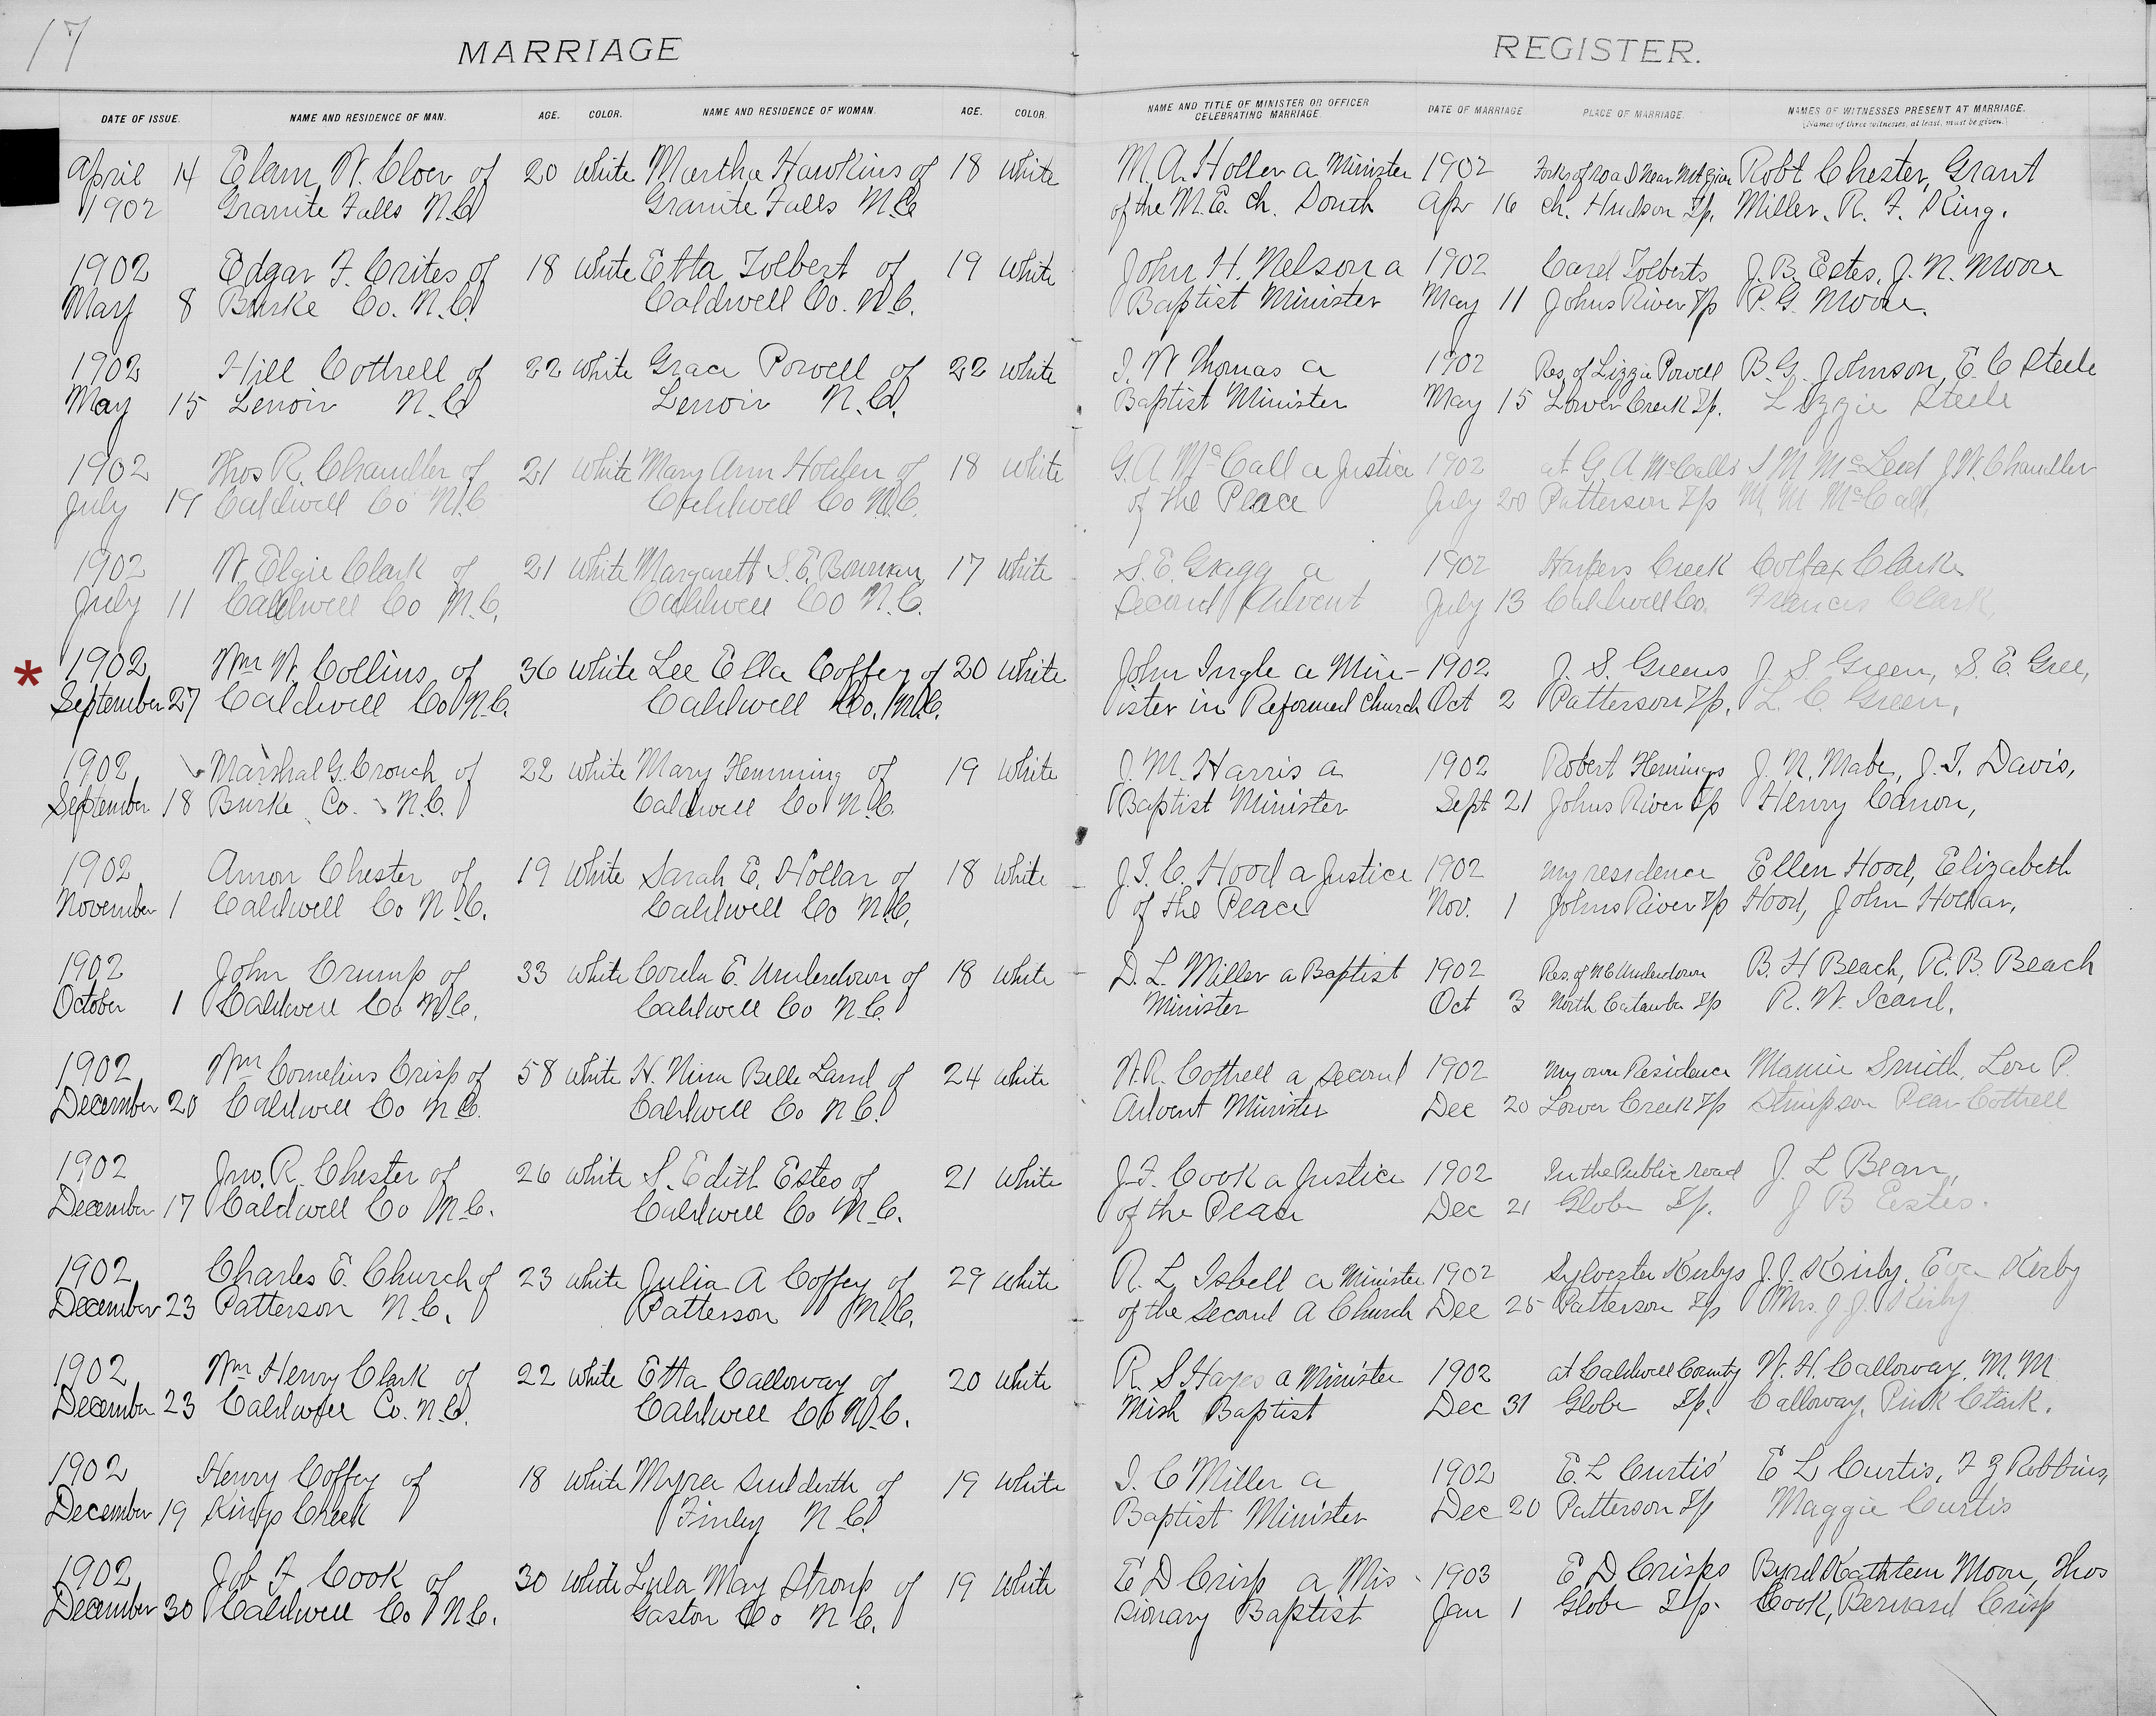 17
MARRIAGE REGISTER.
DATE OF ISSUE. NAME AND RESIDENCE OF MAN. AGE. COLOR. NAME AND RESIDENCE OF WOMAN. AGE. COLOR. NAME AND TITLE OF MINISTER OR OFFICER CELEBRATING MARRIAGE. DATE OF MARRIAGE. PLACE OF MARRIAGE. NAMES OF WITNESSES PRESENT AT MARRIAGE.
(Names of three witnesses, at least, must be given.)
April 14 Elam W. Cloer of 20 White Martha Hawkins of 18 White M. A. Holler a Minister 1902 Forks of road Near Robt Chester, Grant
1902 Granite Falls N.C. Granite Falls N.C. of the M.E. Ch. South Apr 16 Ch. Hudson Tp. Miller, R. F. King.
1902 Edgar F. Crites of 18 White Etta Tolbert of 19 White John H. Nelson a 1902 Carel Tolberts J. B. Estes, J. N. Moore
May 8 Burke Co. N.C. Caldwell Co. N.C. Baptist Minister May 11 Johns River Tp P. G. Moore.
1902 Hill Cottrell of 22 White Grace Powell of 22 White J. W Thomas a 1902 Res. of Lizzie Powell B. G. Johnson, E. C Steele
May 15 Lenoir N.C. Lenoir N.C. Baptist Minister May 15 Lower Creek Tp. Lizzie Steele
1902 Thos R. Chandler of 21 White Mary Ann Holden of 18 White G. A McCall a Justice 1902 at G. A. McCalls S M McLeod J. W. Chandler
July 19 Caldwell Co N.C. Caldwell Co N.C. of the Peace July 20 Patterson Tp M. M McCall,
1902 W. Elgie Clark of 21 White Margarett S. E. Bowman 17 White S. E. Gragg a 1902 Harpers Creek Colfax Clark
July 11 Caldwell Co N.C. Caldwell Co N.C. Second Advent July 13 Caldwell Co. Francis Clark,
* 1902 Wm W. Collins of 36 White Lee Ella Coffey of 20 White John Ingle a Min- 1902 J. S. Greens J. S Green, S. E. Gree,
September 27 Caldwell Co N.C. Caldwell Co. N.C. ister in Reformed Church Oct 2 Patterson Tp. L. C. Green,
1902 Marshal G. Crouch of 22 White Mary Hemming of 19 White J. M. Harris a 1902 Robert Hemings J. N. Mabe, J. T. Davis,
September 18 Burke Co. N.C. Caldwell Co N.C. Baptist Minister Sept 21 Johns River Tp Henry Canon,
1902 Amon Chester of 19 White Sarah E. Hollar of 18 White J. T. C. Hood a Justice 1902 my residence Ellen Hood, Elizabeth
November 1 Caldwell Co N.C. Caldwell Co N.C. of the Peace Nov. 1 Johns River Tp Hood, John Hollar,
1902 John Crump of 33 White Corda E. Underdown of 18 White D. L. Miller a Baptist 1902 Res. of Underdown B. H Beach, R. B. Beach
October 1 Caldwell Co N.C. Caldwell Co N.C. Minister Oct 3 North Catawba Tp R. W. Icard.
1902 Wm Cornelius Crisp of 58 White H. Nina Belle Land of 24 White W. R. Cottrell a Second 1902 My own Residence Mamie Smith, Lou P.
December 20 Caldwell Co N.C. Caldwell Co N.C. Advent Minister Dec 20 Lower Creek Tp Stimpson Pear Cottrell
1902 Jno. R. Chester of 26 White S. Edith Estes of 21 White J. F. Cook a Justice 1902 In the Public road J. L Bean,
December 17 Caldwell Co N.C. Caldwell Co N.C. of the Peace Dec 21 Globe Tp. J B Estes.
1902 Charles E. Church of 23 White Julia A Coffey of 29 White R. L Isbell a Minister 1902 Sylvester Kirbys J. J. Kirby. Eva Kirby
December 23 Patterson N.C. Patterson N.C. of the Second A Church Dec 25 Patterson Tp Mrs. J. J. Kirby
1902 Wm Henry Clark of 22 White Etta Calloway of 20 White R. S Hayes a Minister 1902 at Caldwell County W. H. Calloway, M. M
December 23 Caldwell Co. N.C. Caldwell Co N.C. Mish Baptist Dec 31 Globe Tp. Calloway, Pink Clark.
1902 Henry Coffey of 18 White Myra Sudderth of 19 White I. C Miller a 1902 E. L Curtis' E L Curtis, F Z Robbins,
December 19 Kings Creek Finley N.C. Baptist Minister Dec 20 Patterson Tp Maggie Curtis
1902 Job F Cook of 30 White Lula May Stroup of 19 White E D Crisp a Mis- 1903 E D Crisps Byrd Kathleen Moore, Thos
December 30 Caldwell Co N.C. Gaston Co N.C. sionary Baptist Jan 1 Globe Tp. Cook, Bernard Crisp